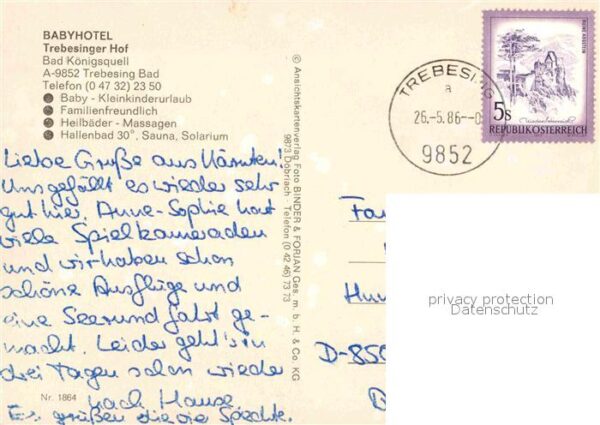 BABYHOTEL
Trebesinger Hof
Bad Königsquell
A-9852 Trebesing Bad
Telefon (0 47 32) 23 50
Baby - Kleinkinderurlaub
Familienfreundlich
Heilbäder - Massagen
Hallenbad 30°, Sauna, Solarium
Liebe Grüße aus Kärnten!
Uns gefällt es wieder sehr
gut hier. Anne-Sophie hat
viele Spielkameraden
und wir haben schon
schöne Ausflüge und
eine Seerundfahrt ge-
macht. Leider geht's in
drei Tagen schon wieder
nach Hause
Es grüßen die
Nr. 1864
© Ansichtskartenverlag Foto BINDER & FORJAN Ges. m. b. H. & Co. KG
9873 Döbriach - Telefon (0 42 46) 73 73
TREBESING
a
26.-5.86
9852
5s
REPUBLIK ÖSTERREICH
D-850
privacy protection
Datenschutz